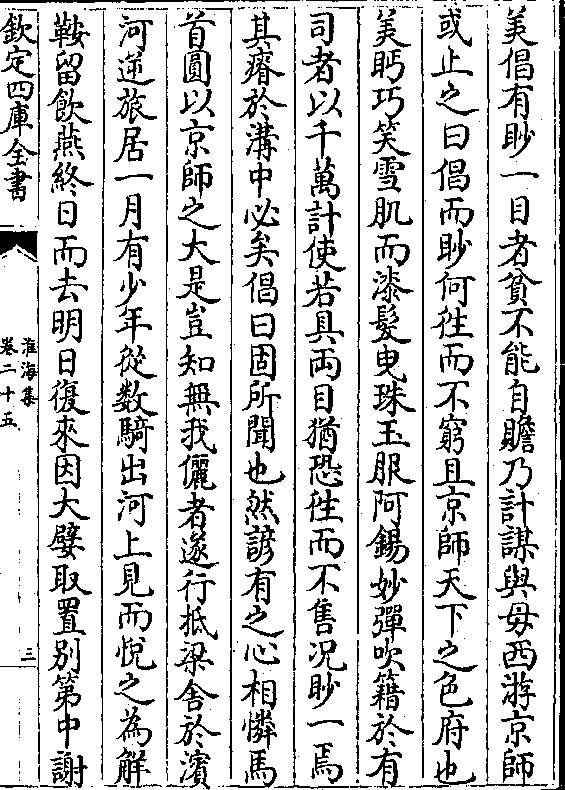 美倡有眇一目者貧不能自贍乃計謀與母西游京師
或止之曰倡而眇何徃而不窮且京師天下之色府也
美眄巧笑雪肌而漆髮曳珠玉服阿錫妙彈吹籍於有
司者以千萬計使若具兩目猶恐徃而不售況眇一焉
其瘠於溝中必矣倡曰固所聞也然諺有之心相憐馬
首圓以京師之大是豈知無我儷者遂行抵梁舍於濱
河逆旅居一月有少年從數騎出河上見而悅之為解
鞍留飲燕終日而去明日復來因大嬖取置别第中謝
欽定四庫全書
淮海集
卷二十五
三